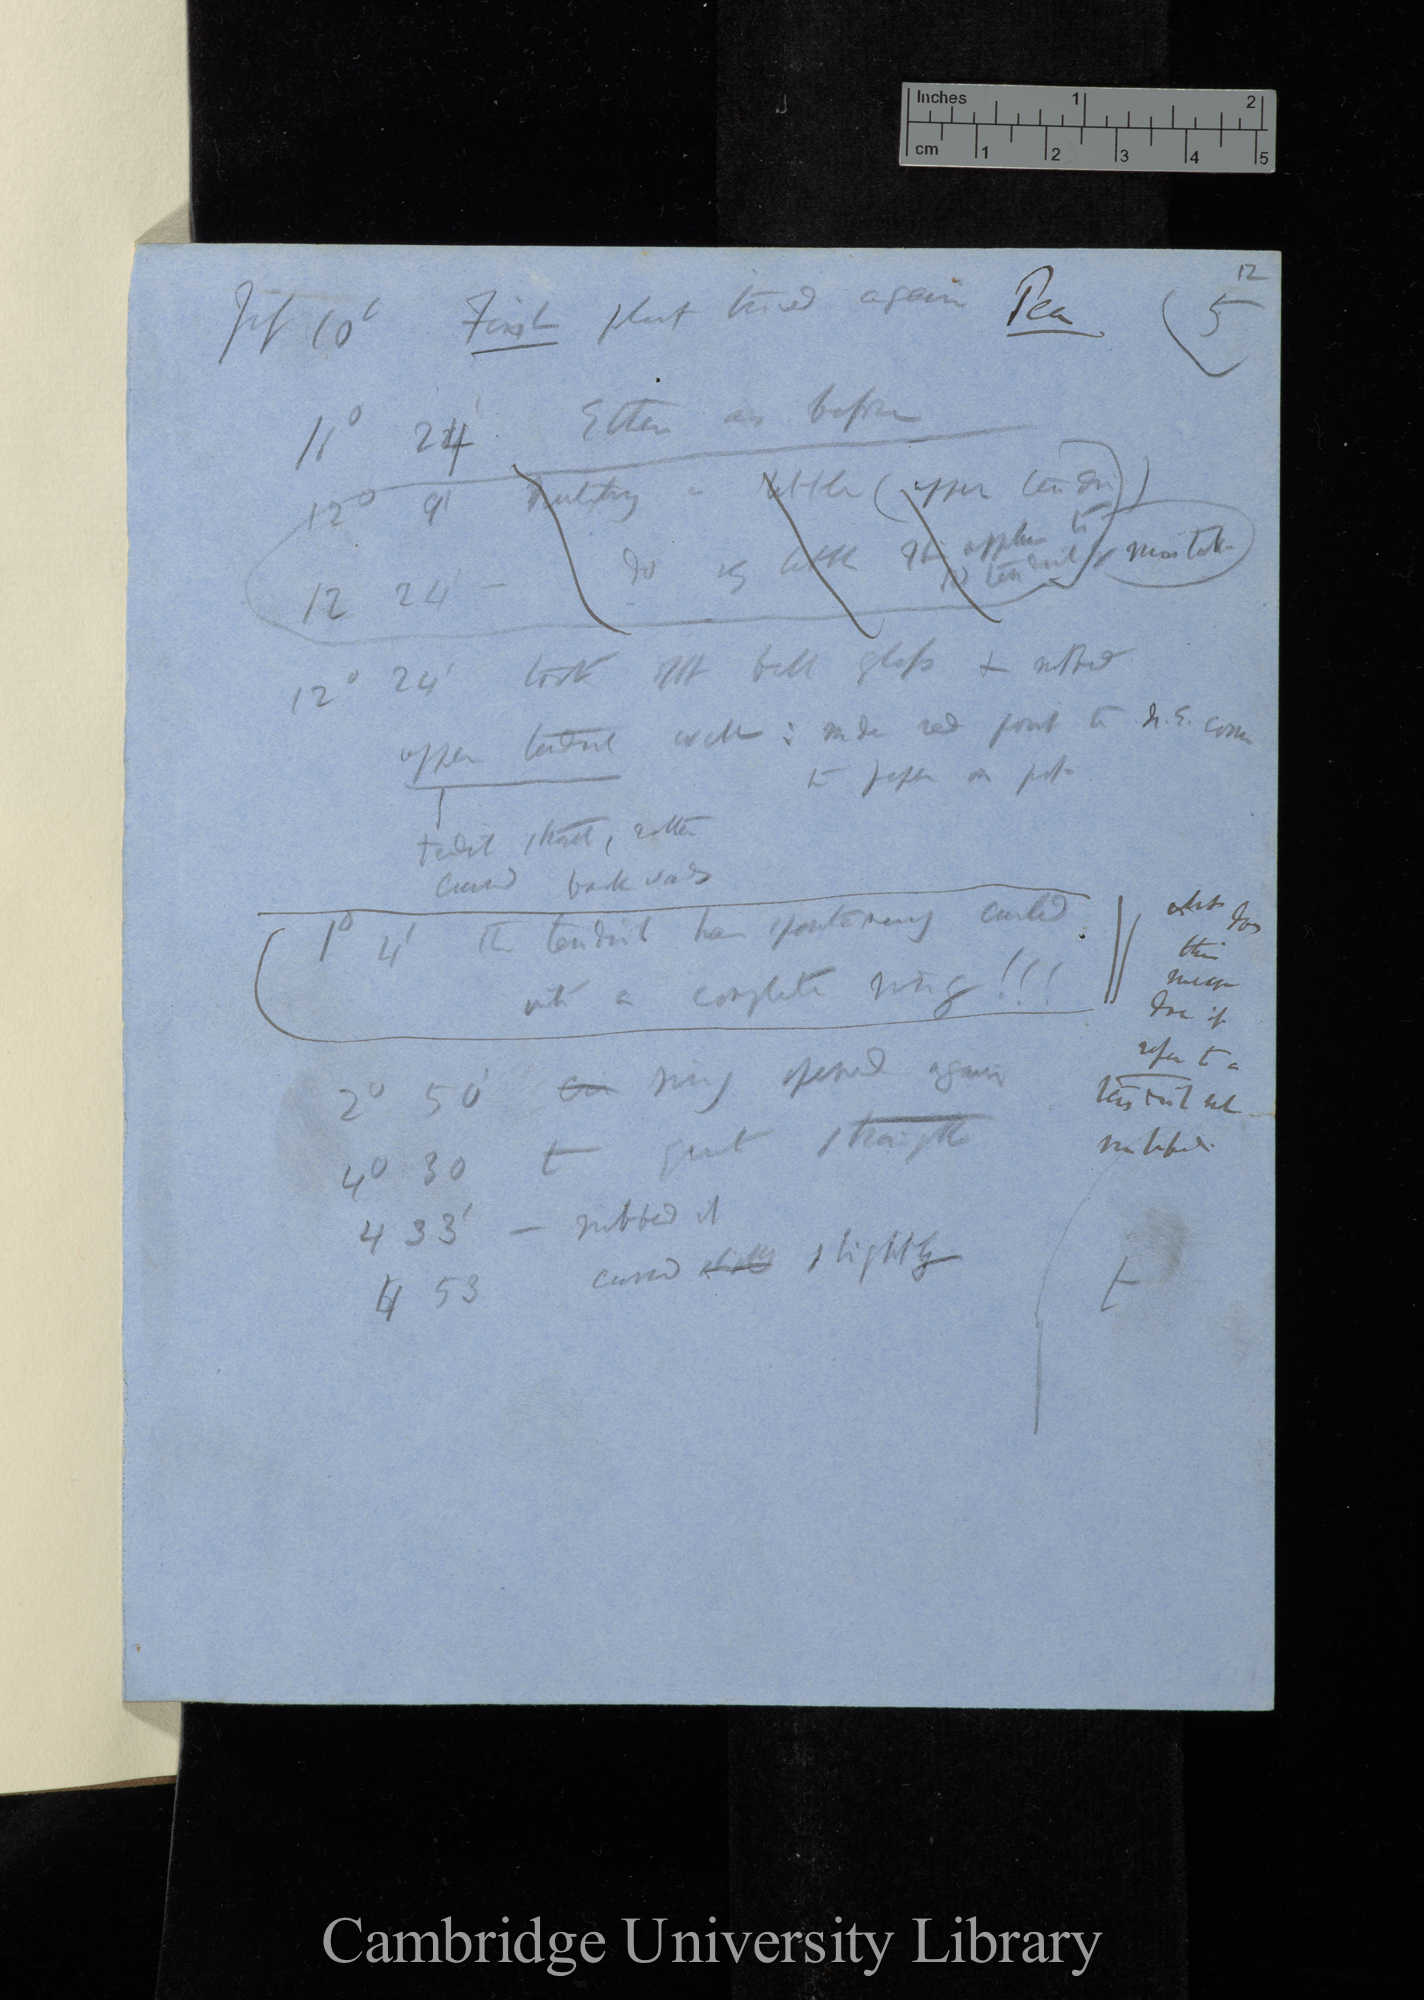 Inches 1 2
cm 1 2 3 4 5
12
10' First plant tried again Pea (5
11° 24' Ether as before
12° 9' a little (upper tendril)
12 24' — Do little This applies to
tendril mistake
12° 24' took off bell glass + rubbed
upper tendril well : made red point to N.E. corner
to paper on pot
tendril straight, rather
curved backwards
1° 4' The tendril has spontaneously curled
into a complete ring!!!
what does
this
mean
Does it
refer to a
tendril not
rubbed.
2° 50' ring opened again
4° 30 to quite straight
4 33' — rubbed it
4 53 curved slightly
Cambridge University Library